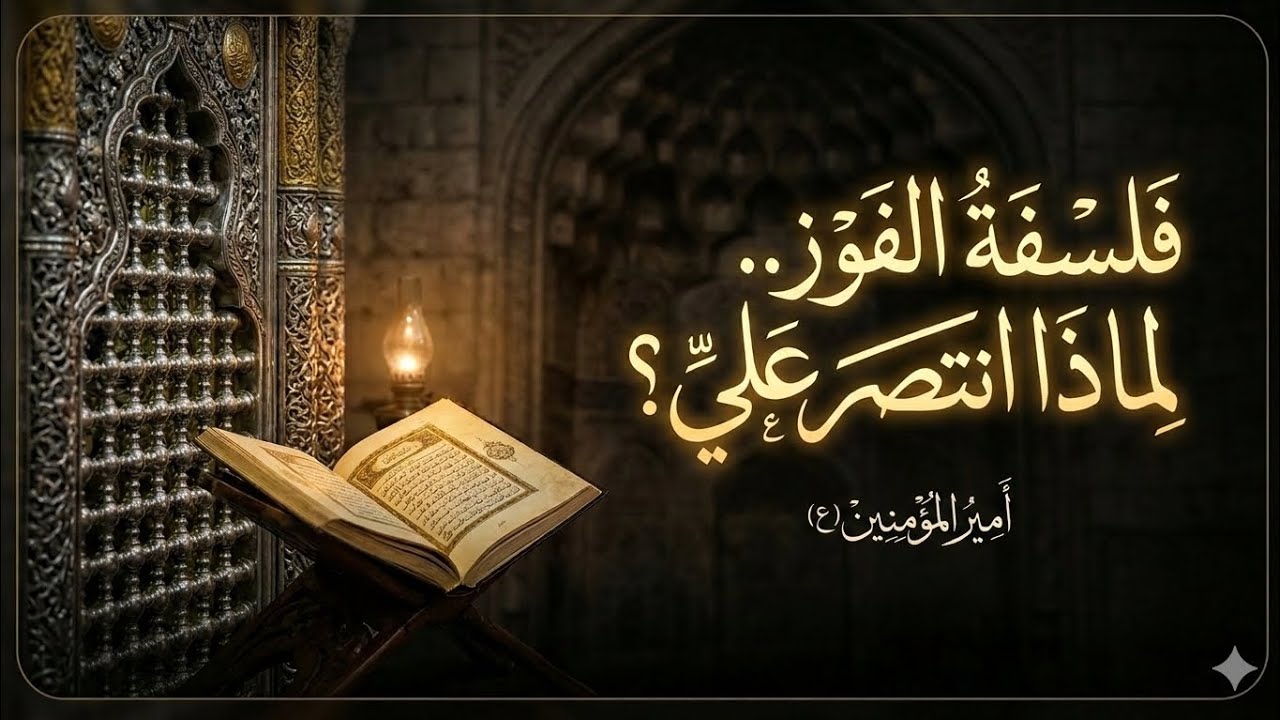 فَلسْفَةُ الفَوْز..
لِماذَا انتصَرَ عَليِّ ع ؟
أَمِيرُ المُؤْمِنِينْ (ع)